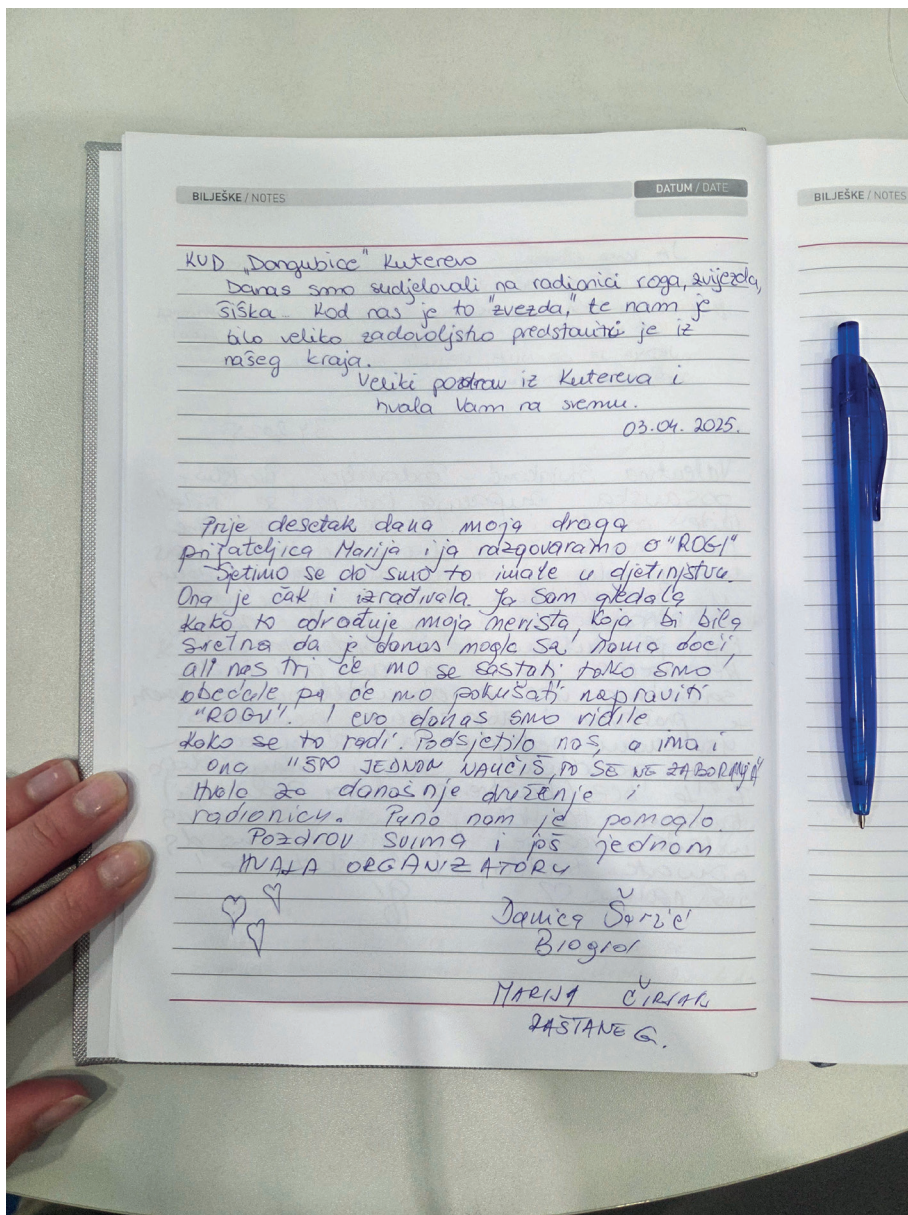 BILJEŠKE / NOTES
DATUM / DATE
KUD "Dangubice" Kuterevo
Danas smo sudjelovali na radionici roga, zvijezda,
šiška. Kod nas je to "zvezda", te nam je
bilo veliko zadovoljstvo predstaviti je iz
našeg kraja.
Veliki pozdrav iz Kutereva i
hvala Vam na svemu.
03.04. 2025.
Prije desetak dana moja draga
prijateljica Marija i ja razgovaramo o "ROGI"
Sjetimo se da smo to imale u djetinjstvu.
Ona je čak i izrađivala. Ja sam gledala
kako to odrađuje moja nerista, koja bi bila
sretna da je danas mogla sa nama doći,
ali nas tri će mo se sastati, tako smo
obećale pa će mo pokušati napraviti
"ROGU". I evo danas smo vidile
kako se to radi. Podsjetilo nas, a ima i
ona "ŠTO JEDNOM NAUČIŠ, TO SE NE ZABORAVLJA"
Hvala za današnje druženje i
radionicu. Puno nam je pomoglo.
Pozdrav svima i još jednom
HVALA ORGANIZATORU
Danica Šarzić
Biograd
MARIJA
RAŠTANE G.
BILJEŠKE / NOTES